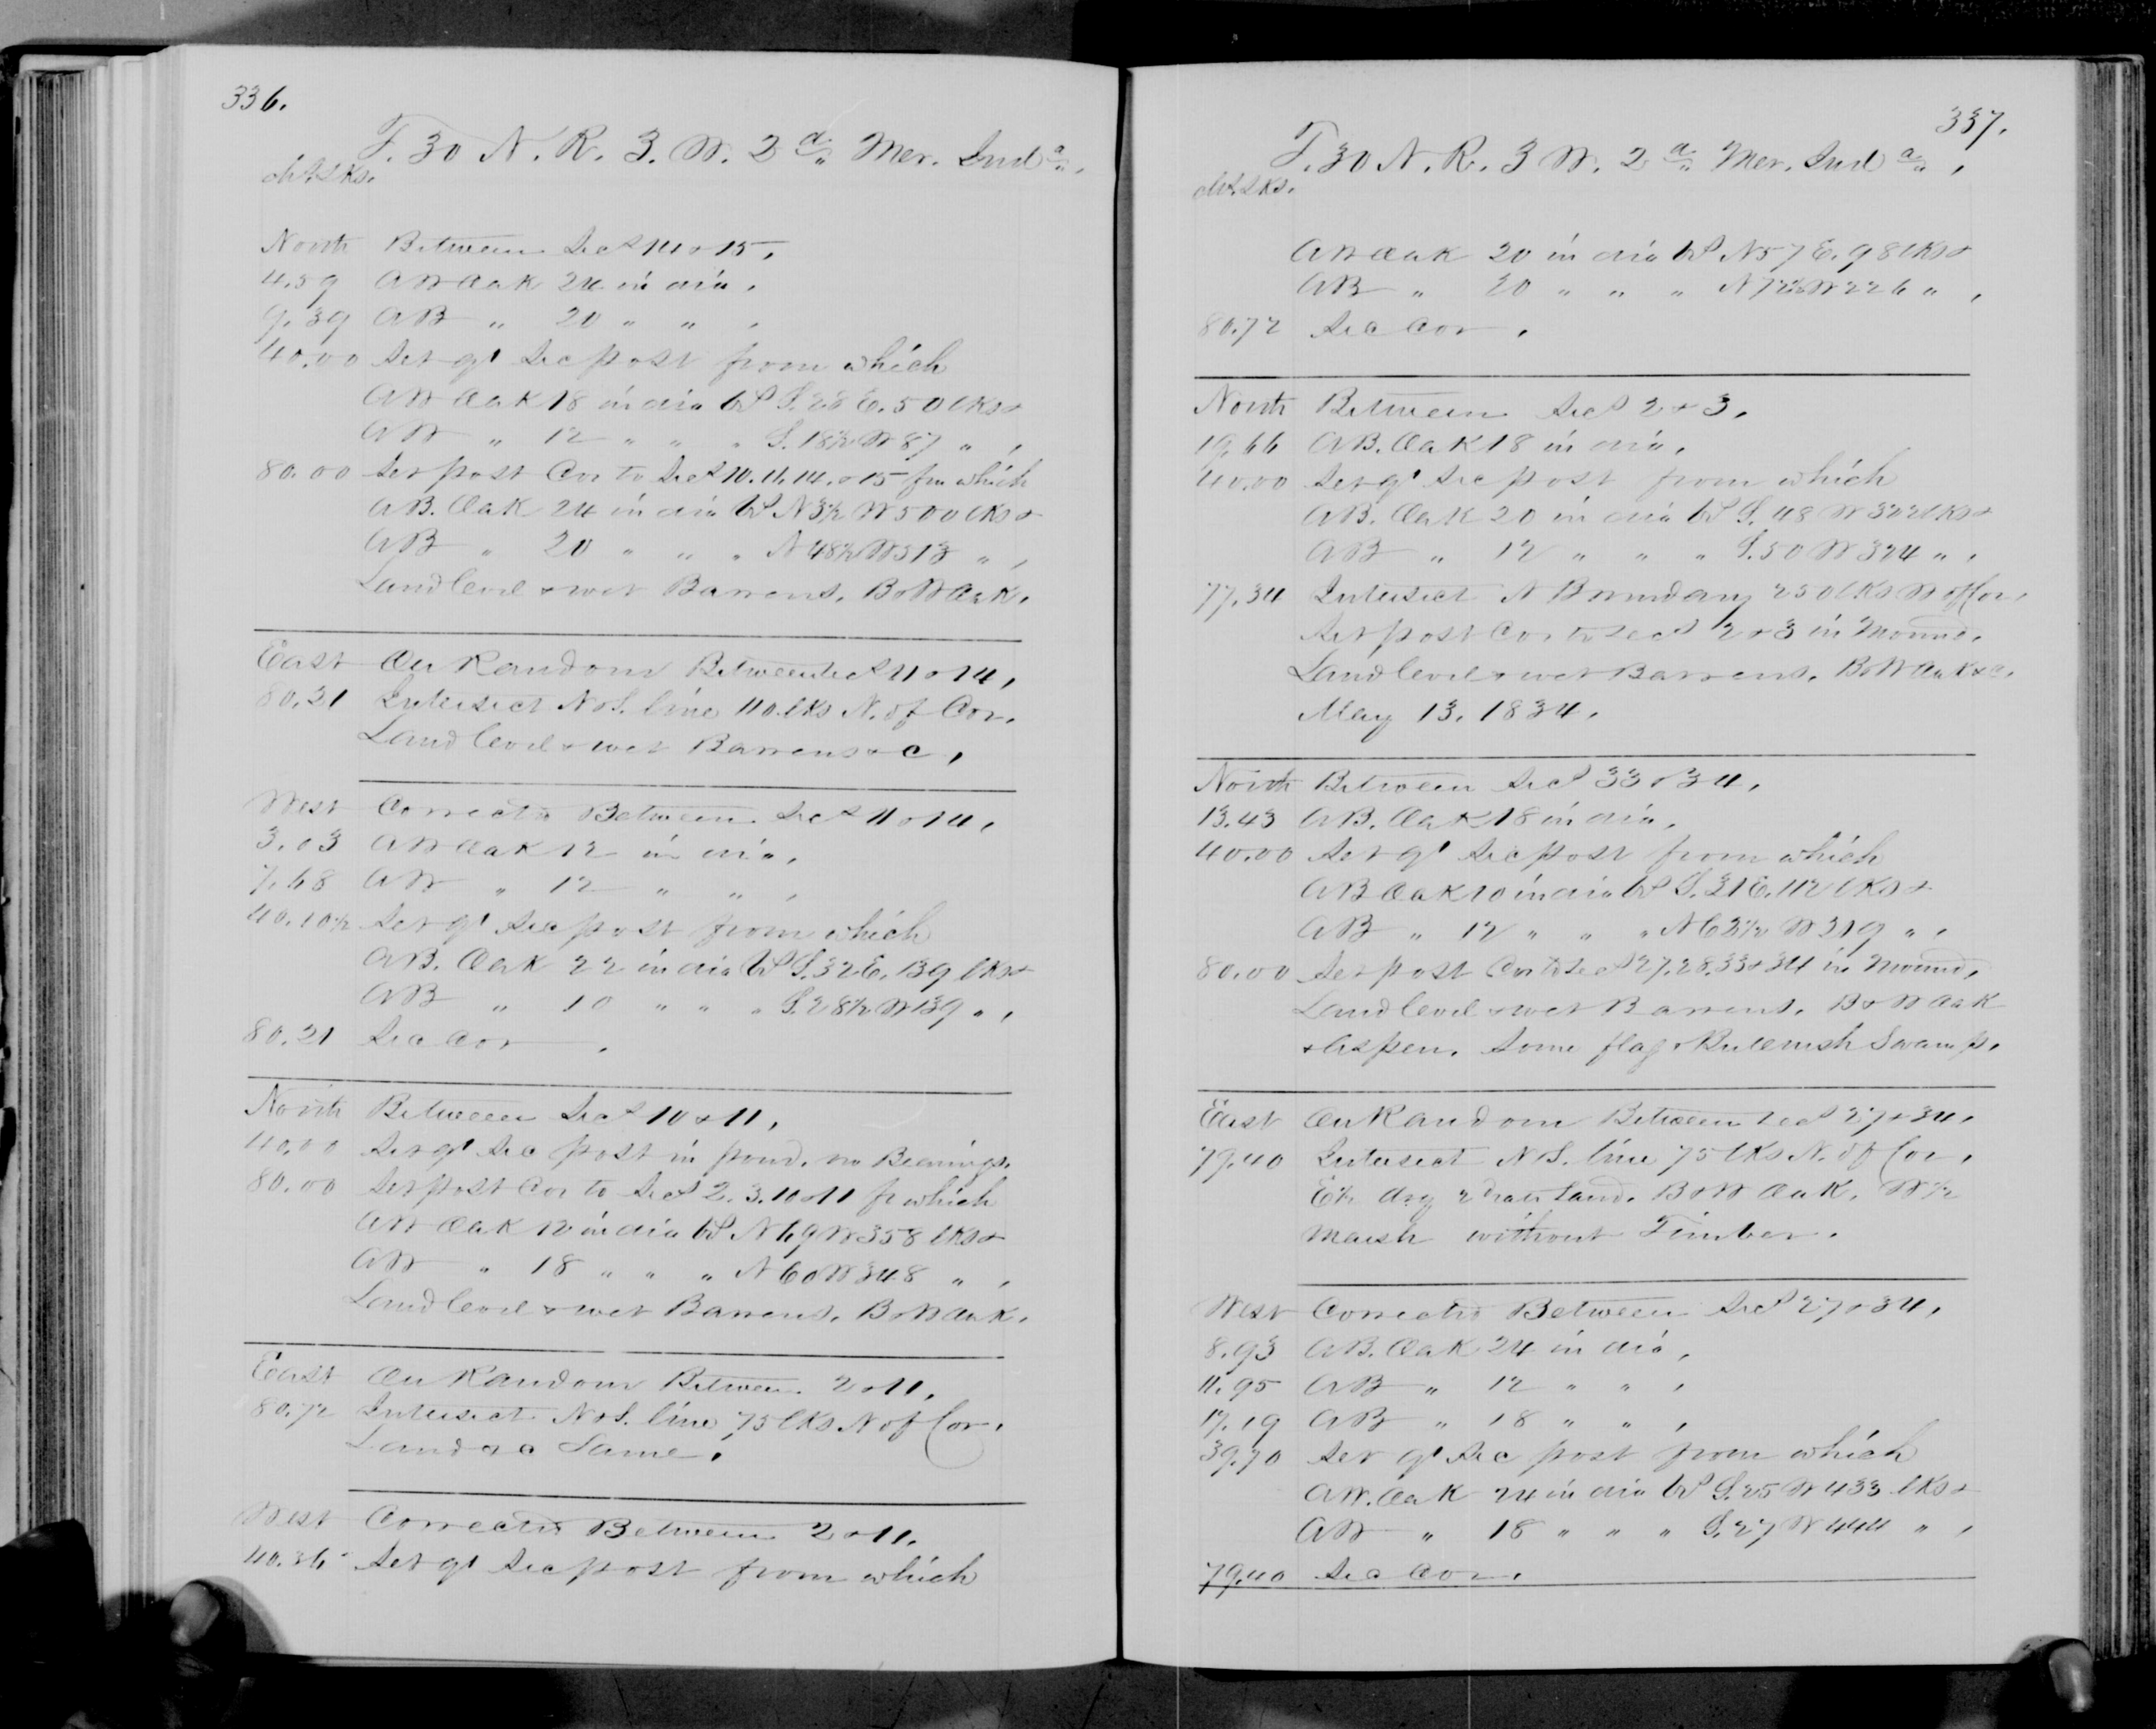 336.
T. 30 N. R. 3. W. 2d Mer. Inda.
chs. Lks.
North Between Secs 14 & 15,
4.59 A W Oak 24 in dia,
9.39 A B " 20 " " ,
40.00 Set qr Sec post from which
A W Oak 18 in dia brs S. 28 E. 50 lks &
A W " 12 " " " S. 18½ W 87 " ,
80.00 Set post Cor to Secs 10. 11. 14. & 15 fm which
A B. Oak 24 in dia brs N 3½ W 500 lks &
A B " 20 " " " N 48½ W 313 " ,
Land level & wet Barrens. B & W Oak.
East On Random Between Secs 11 & 14,
80.21 Intersect N & S. line 110 lks N. of Cor.
Land level & wet Barrens & c,
West Correctd Between Secs 11 & 14,
3.03 A W Oak 12 in dia,
7.68 A W " 12 " " ,
40.10½ Set qr Sec post from which
A B. Oak 22 in dia brs S. 32 E. 139 lks &
A B " 10 " " " S. 28½ W 139 " ,
80.21 Sec Cor.
North Between Secs 10 & 11,
40.00 Set qr Sec post in pond. no Bearings.
80.00 Set post Cor to Secs 2. 3. 10 & 11 fr which
A W Oak 12 in dia brs N 69 W 358 lks &
A W " 18 " " " N 60 W 348 " ,
Land level & wet Barrens. B & W Oak.
East On Random Between 2 & 11,
80.72 Intersect N & S. line 75 lks N of Cor.
Land as Same.
West Correctd Between 2 & 11,
40.36 Set qr Sec post from which
337.
T. 30 N. R. 3 W. 2d Mer. Inda,
chs. Lks.
A W Oak 20 in dia brs N 57 E. 98 lks &
A B " 20 " " " N 72½ W 226 " ,
80.72 Sec Cor.
North Between Secs 2 & 3,
19.66 A B. Oak 18 in dia,
40.00 Set qr Sec post from which
A B. Oak 20 in dia brs S. 48 W 302 lks &
A B " 12 " " " S. 50 W 324 " ,
77.34 Intersect N Boundary 250 lks W of Cor.
Set post Cor to Secs 2 & 3 in Mound.
Land level & wet Barrens. B & W Oak & c.
May 13. 1834.
North Between Secs 33 & 34,
13.43 A B. Oak 18 in dia,
40.00 Set qr Sec post from which
A B Oak 10 in dia brs S. 31 E. 112 lks &
A B " 12 " " " N 63½ W 319 " ,
80.00 Set post Cor to Secs 27. 28. 33 & 34 in Mound,
Land level & wet Barrens. B & W Oak
& Aspen. Some flag & Bulrush Swamp.
East On Random Between Secs 27 & 34,
79.40 Intersect N S. line 75 lks N. of Cor,
E½ dry 2d rate Land. B & W Oak. W½
Marsh without Timber.
West Correctd Between Secs 27 & 34,
8.93 A B. Oak 24 in dia,
11.95 A B " 12 " " ,
17.19 A B " 18 " " ,
39.70 Set qr Sec post from which
A W. Oak 24 in dia brs S. 25 W 433 lks &
A W " 18 " " " S. 27 W 444 " ,
79.40 Sec Cor.